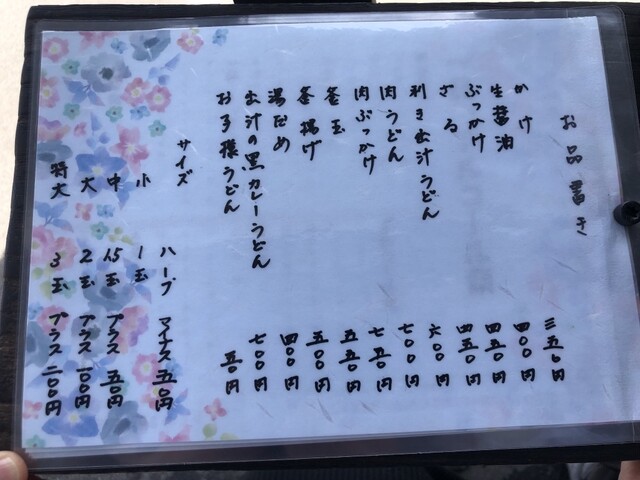 お品書き
かけ 三五〇円
生醤油 四〇〇円
ぶっかけ 四五〇円
ざる 四五〇円
利き出汁うどん 六〇〇円
肉うどん 七〇〇円
肉ぶっかけ 七五〇円
釜玉 五五〇円
釜揚げ 五〇〇円
湯だめ 四〇〇円
出汁の黒カレーうどん 七〇〇円
お子様うどん 五〇円
サイズ
ハーフ マイナス五〇円
小 1玉
中 1.5玉 プラス五〇円
大 2玉 プラス一〇〇円
特大 3玉 プラス二〇〇円